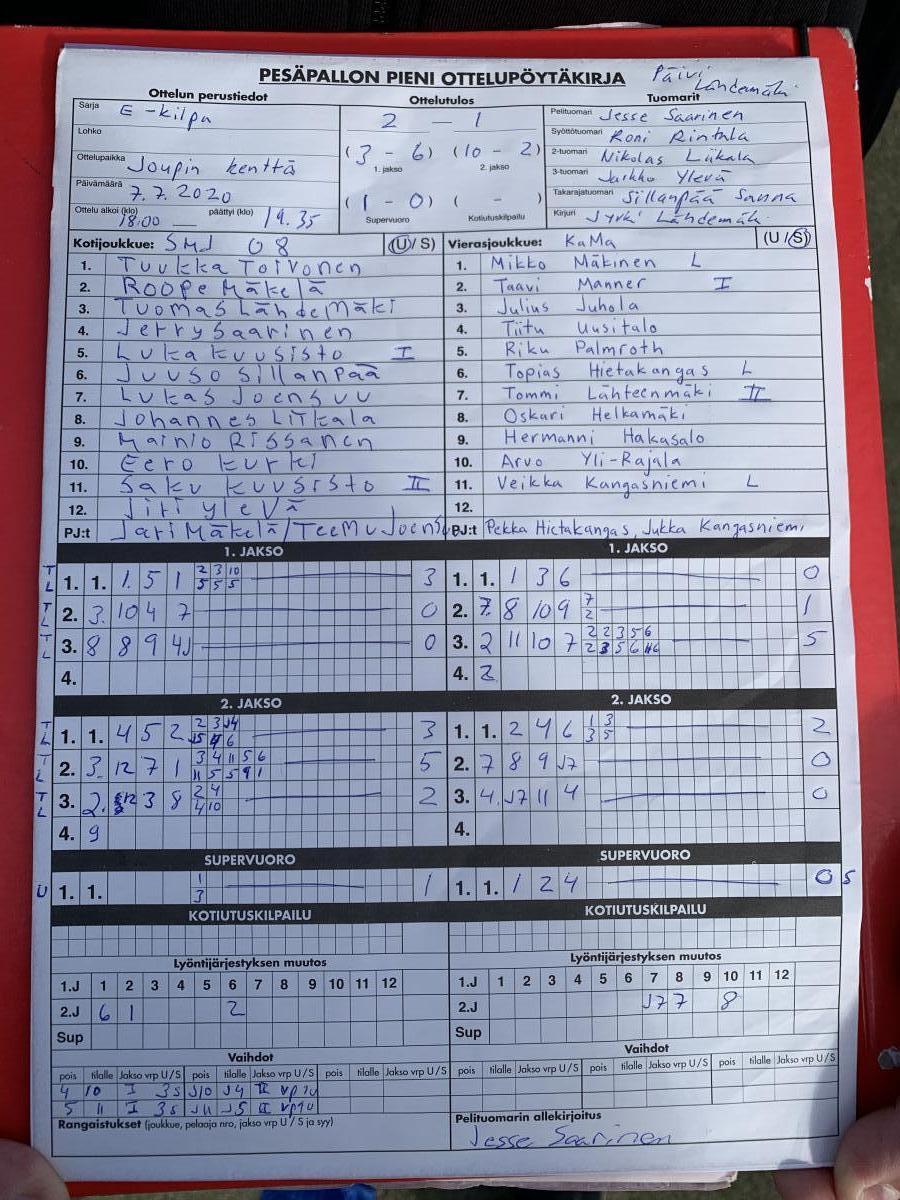 PESÄPALLON PIENI OTTELUPÖYTÄKIRJA
Päivi Lähdemäki
Ottelun perustiedot Ottelutulos Tuomarit
Sarja E-kilpa
Lohko
Ottelupaikka Joupin kenttä
Päivämäärä 7.7.2020
Ottelu alkoi (klo) 18:00 päättyi (klo) 19.35
2 - 1
(3 - 6) (10 - 2)
1. jakso 2. jakso
(1 - 0) ( - )
Supervuoro Kotiutuskilpailu
Pelituomari Jesse Saarinen
Syöttötuomari Roni Rintala
2-tuomari Nikolas Liikala
3-tuomari Jarkko Ylevä
Takarajatuomari Sillanpää Sanna
Kirjuri Jyrki Lähdemäki
Kotijoukkue: SMJ 08 (U/S)
1. Tuukka Toivonen
2. Roope Mäkelä
3. Tuomas Lähdemäki
4. Jerry Saarinen
5. Luka Kuusisto I
6. Juuso Sillanpää
7. Lukas Joensuu
8. Johannes Liikala
9. Mainio Rissanen
10. Eero Kurki
11. Saku Kuusisto II
12. Jiri Ylevä
PJ:t Jari Mäkelä/Teemu Joensuu
Vierasjoukkue: KaMa (U/S)
1. Mikko Mäkinen L
2. Taavi Manner I
3. Julius Juhola
4. Tiitu Uusitalo
5. Riku Palmroth
6. Topias Hietakangas L
7. Tommi Lähteenmäki II
8. Oskari Helkamäki
9. Hermanni Hakasalo
10. Arvo Yli-Rajala
11. Veikka Kangasniemi L
12.
PJ:t Pekka Hietakangas, Jukka Kangasniemi
1. JAKSO
T L 1. 1. 1. 5 1 2 3 10 3
5 5 5
T L 2. 3. 10 4 7 0
T L 3. 8 8 9 4J 0
4.
1. JAKSO
1. 1. 1 3 6 0
2. 7. 8 10 9 7 1
2
3. 2 11 10 7 2 2 3 5 6 5
4. 2
2. JAKSO
T L 1. 1. 4 5 2 2 3 J4 3
T L 2. 3. 12 7 1 3 4 11 5 6 5
11 5 5 9 1
T L 3. 2. 12 3 8 2 4 2
4 10
4. 9
2. JAKSO
1. 1. 2 4 6 1 3 2
3 5
2. 7 8 9 J7 0
3. 4. J7 11 4 0
4.
SUPERVUORO
U 1. 1. 1 1
3
SUPERVUORO
1. 1. 1 2 4 0 S
KOTIUTUSKILPAILU
KOTIUTUSKILPAILU
Lyöntijärjestyksen muutos
1.J 1 2 3 4 5 6 7 8 9 10 11 12
2.J 6 1 2
Sup
Lyöntijärjestyksen muutos
1.J 1 2 3 4 5 6 7 8 9 10 11 12
2.J J7 7 8
Sup
Vaihdot
pois tilalle Jakso vrp U/S pois tilalle Jakso vrp U/S pois tilalle Jakso vrp U/S
4 10 I 3s J10 J4 II vp1u
5 11 I 3s J11 J5 II vp1u
Vaihdot
pois tilalle Jakso vrp U/S pois tilalle Jakso vrp U/S pois tilalle Jakso vrp U/S
Rangaistukset (joukkue, pelaaja nro, jakso vrp U/S ja syy)
Pelituomarin allekirjoitus
Jesse Saarinen